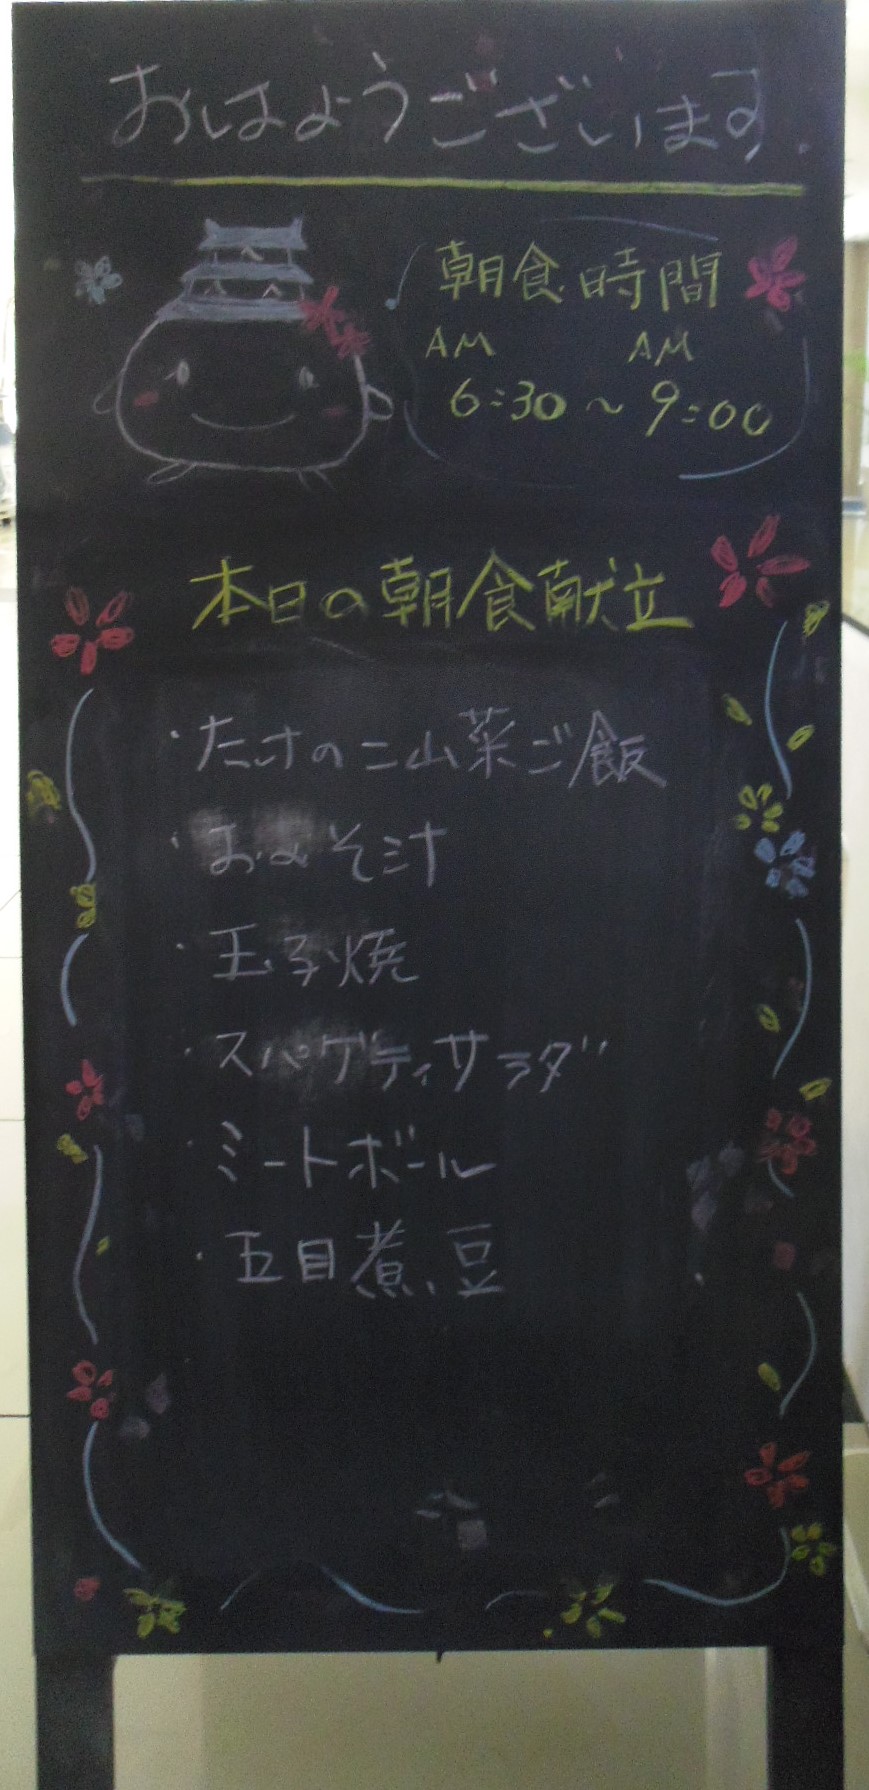 おはようございます.
朝食時間
AM AM
6:30~9:00
本日の朝食献立
・たけのこ山菜ご飯
・おみそ汁
・玉子焼
・スパゲティサラダ
・ミートボール
・五目煮豆